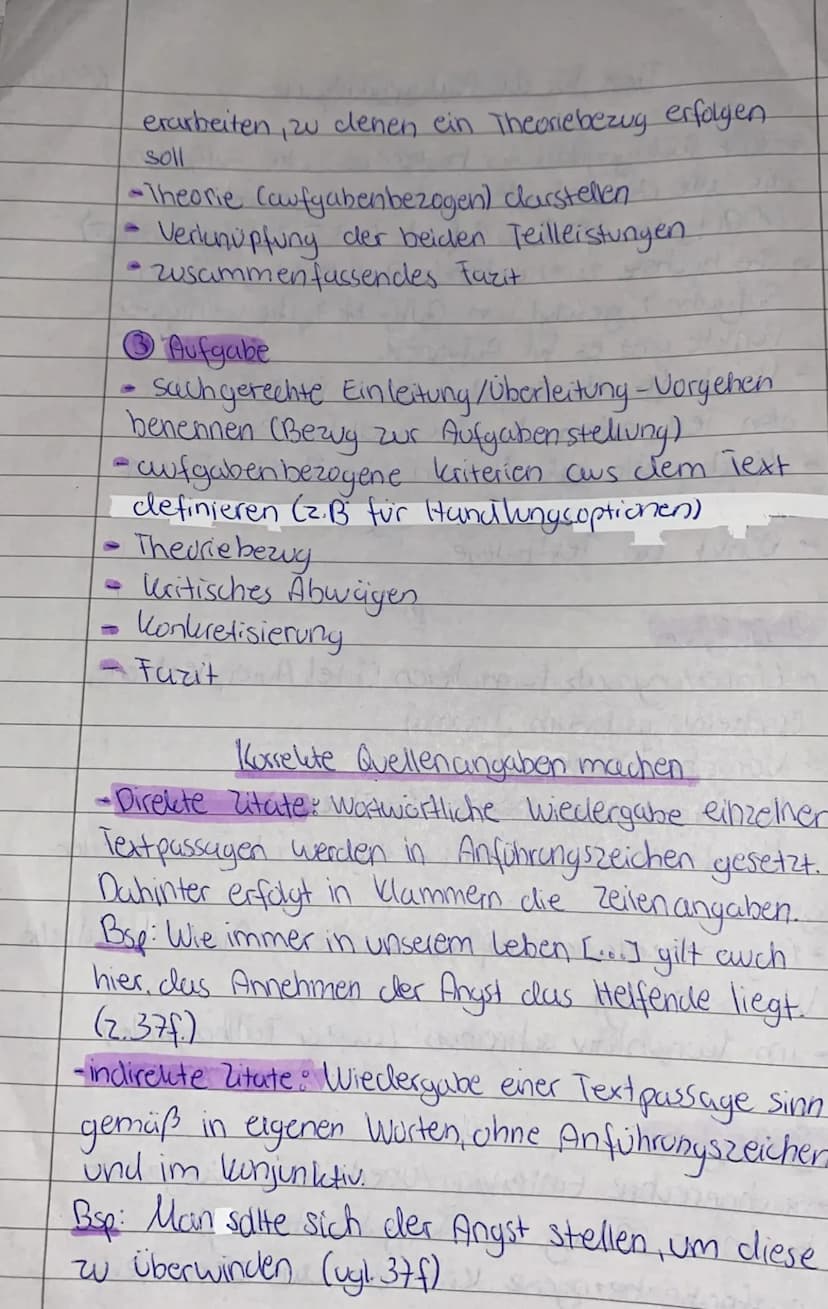 erarbeiten, zu denen ein Theoriebezug erfolgen
soll
- Theorie (aufgabenbezogen) darstellen
- Verknüpfung der beiden Teilleistungen
- zusammenfassendes Fazit
③ Aufgabe
- sachgerechte Einleitung/Überleitung - Vorgehen
benennen (Bezug zur Aufgabenstellung)
- aufgabenbezogene Kriterien aus dem Text
definieren (z.B für Handlungsoptionen)
- Theoriebezug
- Kritisches Abwägen
- Konkretisierung
- Fazit
Korrekte Quellenangaben machen
- Direkte Zitate: Wortwörtliche Wiedergabe einzelner
Textpassagen werden in Anführungszeichen gesetzt.
Dahinter erfolgt in Klammern die Zeilenangaben.
Bsp: Wie immer in unserem Leben [...] gilt auch
hier, das Annehmen der Angst das Helfende liegt.
(z.37f.)
- indirekte Zitate: Wiedergabe einer Textpassage sinn
gemäß in eigenen Worten, ohne Anführungszeichen
und im Konjunktiv.
Bsp: Man sollte sich der Angst stellen, um diese
zu überwinden (vgl. 37f)